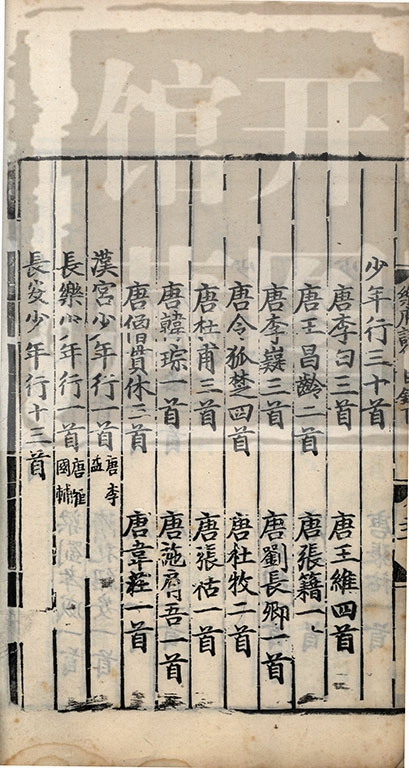 少年行三十首
唐李白三首 唐王維四首
唐王昌齡二首 唐張籍一首
唐李嶷三首 唐劉長卿一首
唐令狐楚四首 唐杜牧二首
唐杜甫三首 唐張祜一首
唐韓琮一首 唐施肩吾一首
唐僧貫休三首 唐韋莊一首
漢宮少年行一首 唐李益
長樂少年行一首 唐崔國輔
長安少年行十三首